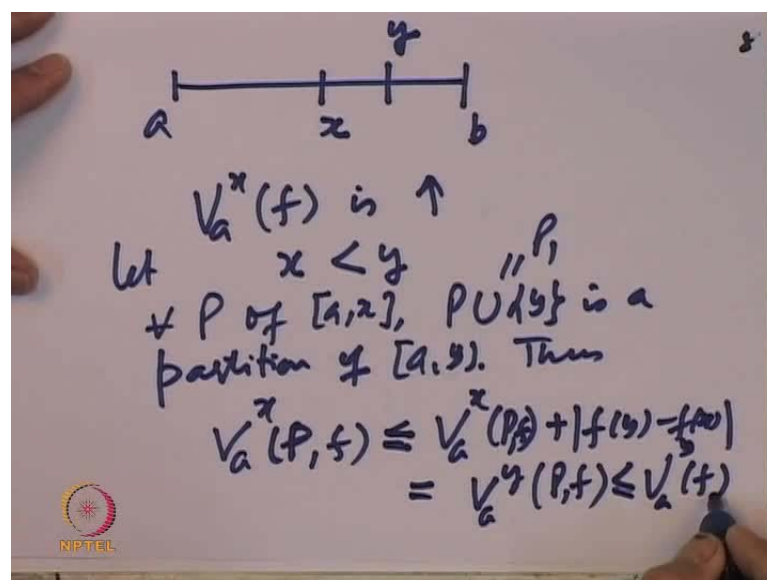 y
8
a x b
V_a^x(f) is ↑
let x < y
" P₁
∀ P of [a,x], P∪{y} is a
partition of [a,y). Thus
V_a^x(P,f) ≤ V_a^x(P,f) + |f(y) − f(x)|
= V_a^y(P,f) ≤ V_a^y(f)
NPTEL